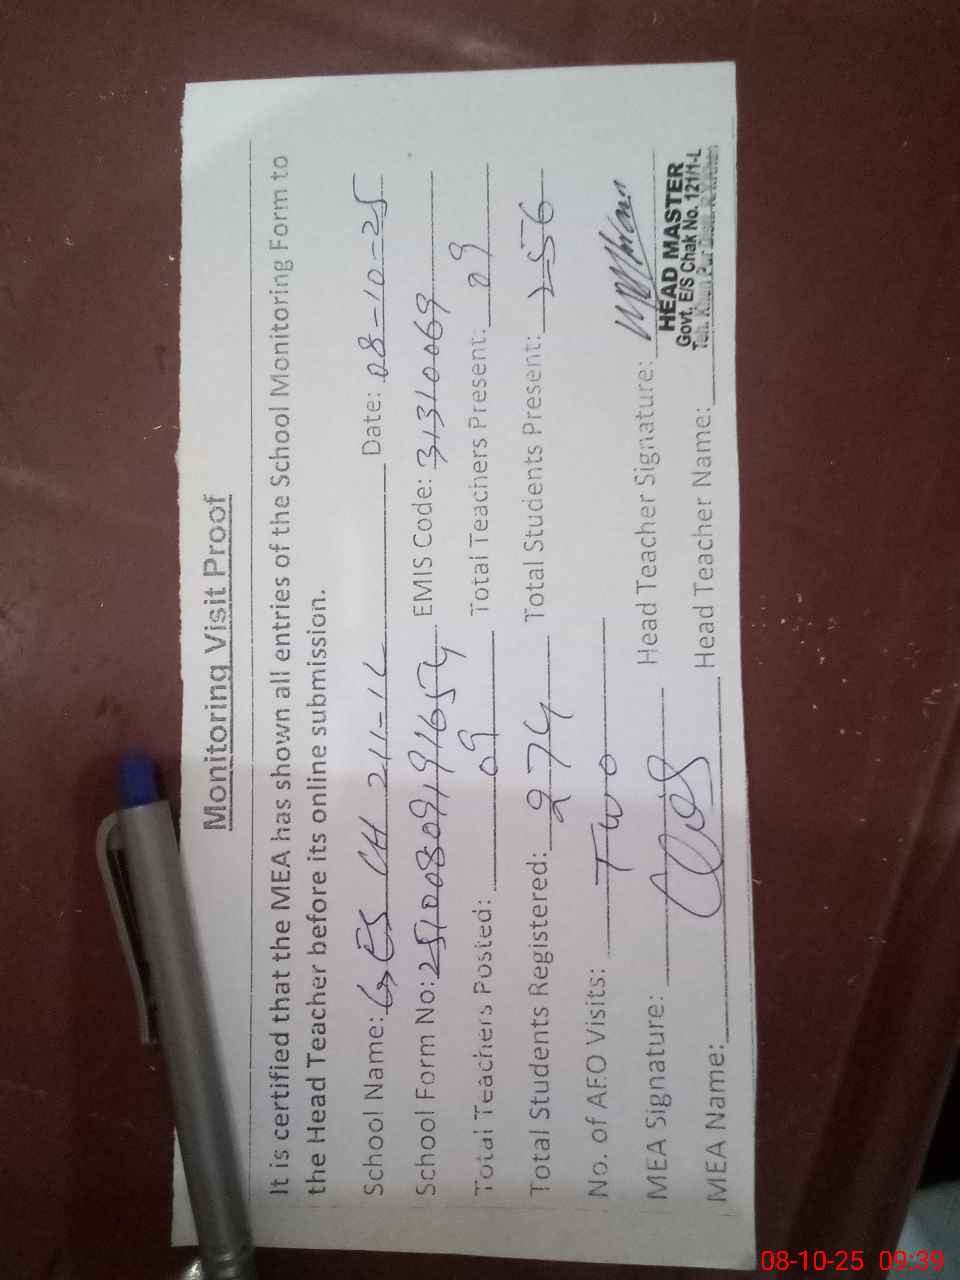 Monitoring Visit Proof
It is certified that the MEA has shown all entries of the School Monitoring Form to
the Head Teacher before its online submission.
School Name: GES CH 211-1L Date: 08-10-25
School Form No: EMIS Code: 31310069
Total Teachers Posted: 09 Total Teachers Present: 09
Total Students Registered: 274 Total Students Present: 256
No. of AFO Visits: Two
MEA Signature: Head Teacher Signature:
HEAD MASTER
Govt. E/S Chak No. 121/1-L
Teh. Khan Pur Distt. R.Y.Khan
MEA Name: Head Teacher Name:
08-10-25 09:39